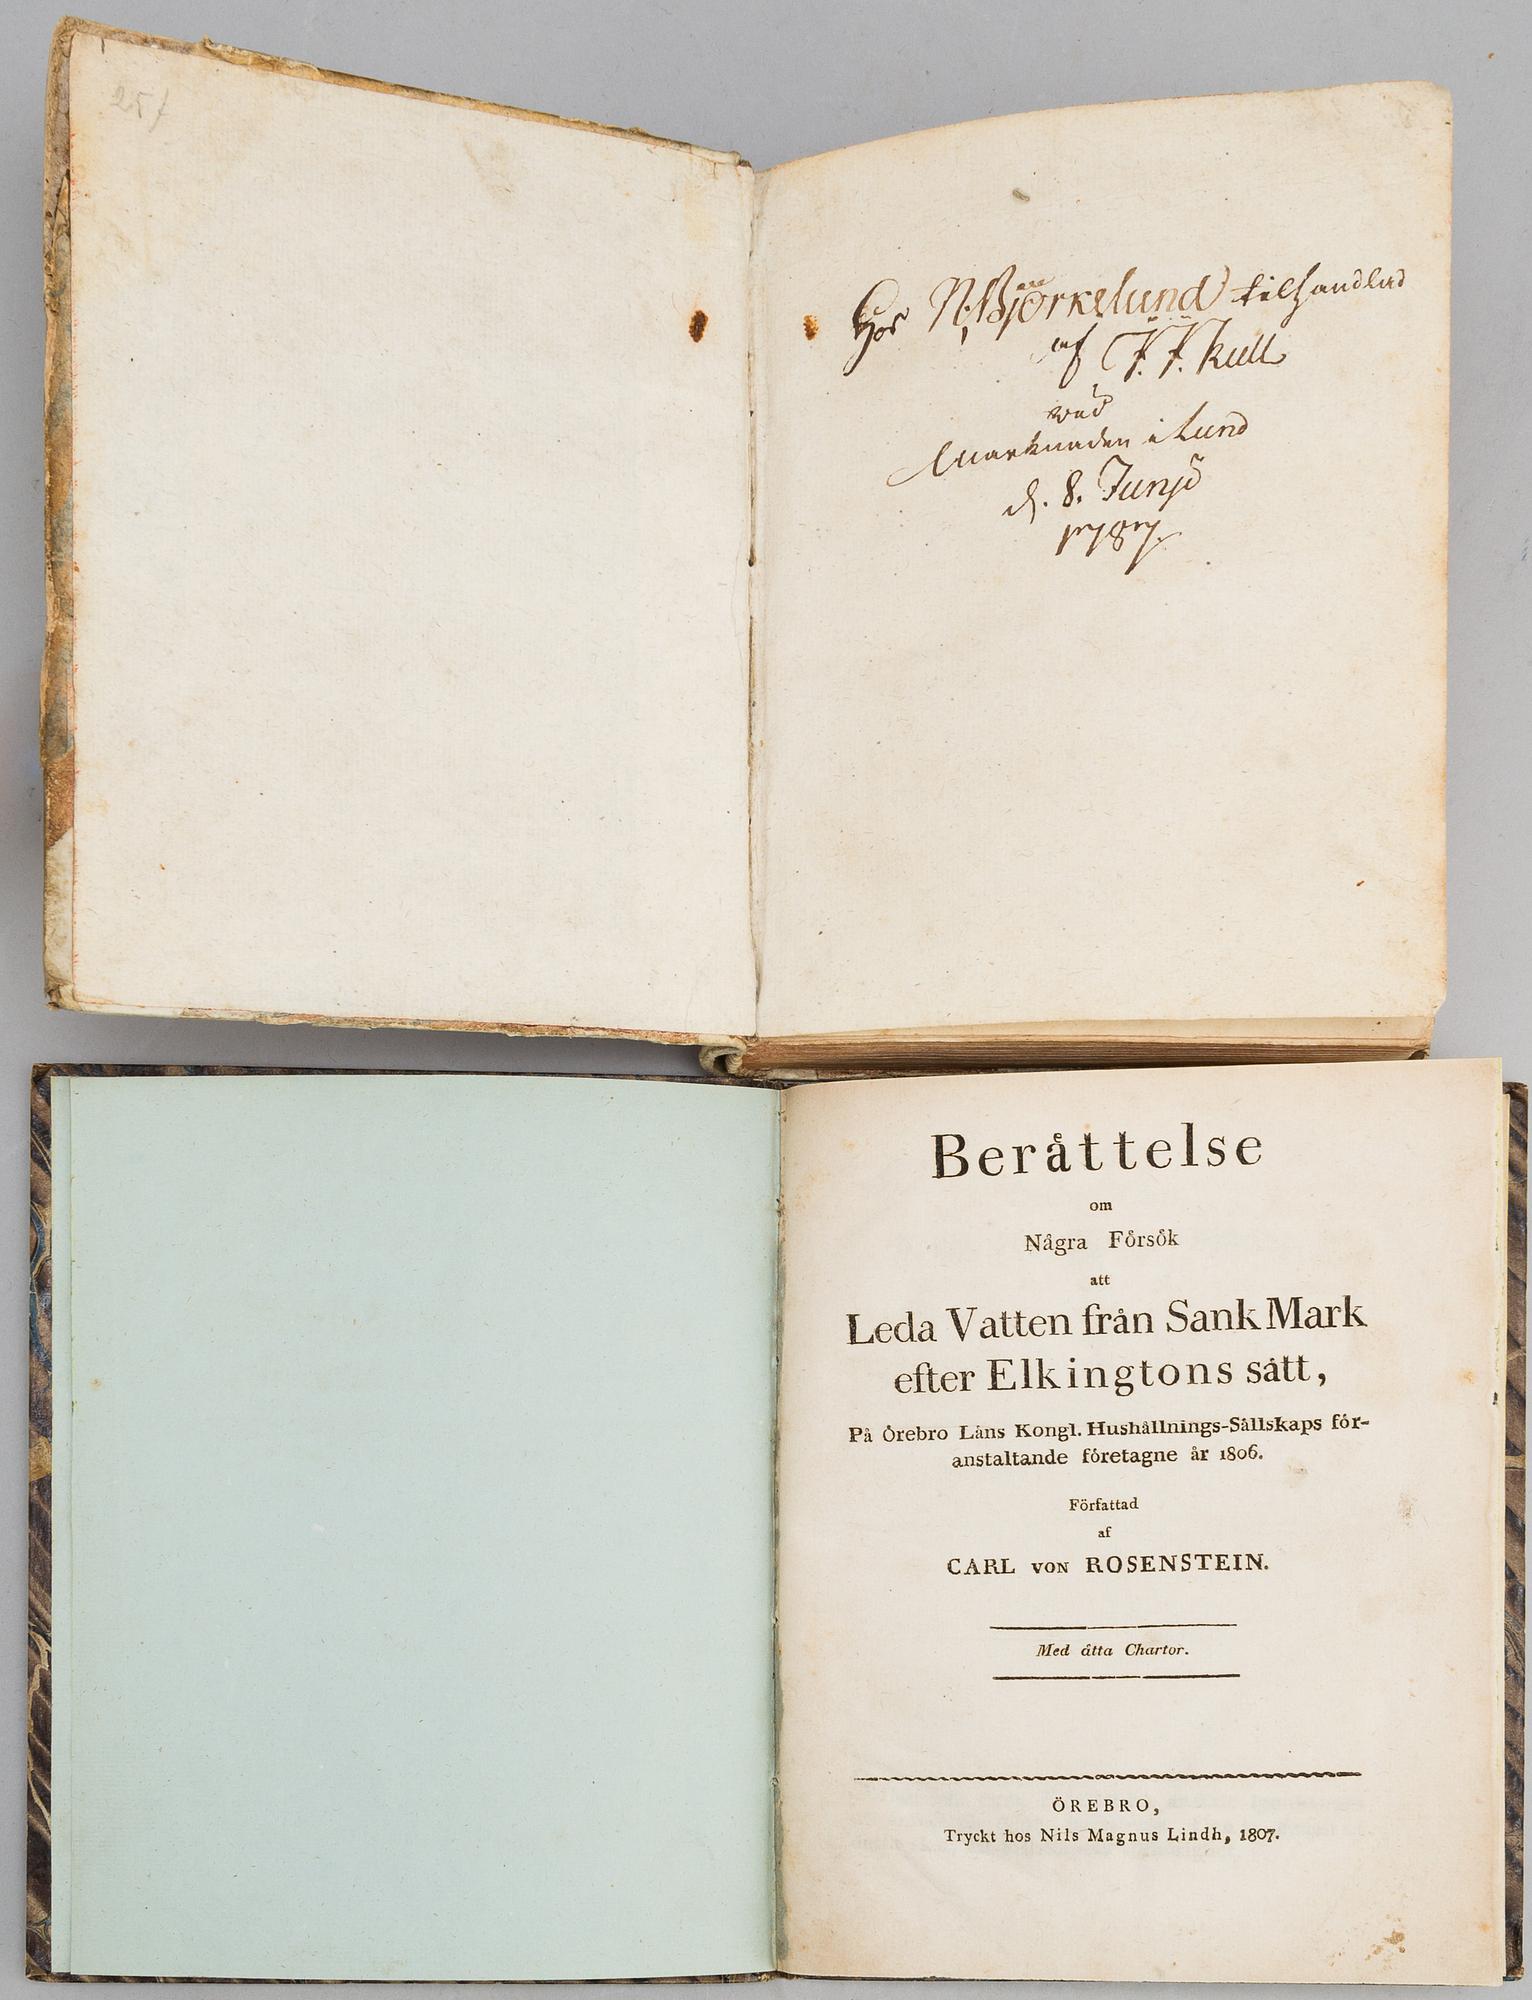 25
Hos N: Björkelund tilhandlad
af J. J. Kull
vid
Marknaden i Lund
d. 8. Junji
1787.
Beråttelse
om
Några Fôrsôk
att
Leda Vatten från Sank Mark
efter Elkingtons sått,
På Ôrebro Låns Kongl. Hushållnings-Sållskaps fôr-
anstaltande fôretagne år 1806.
Författad
af
CARL von ROSENSTEIN.
Med åtta Chartor.
ÖREBRO,
Tryckt hos Nils Magnus Lindh, 1807.